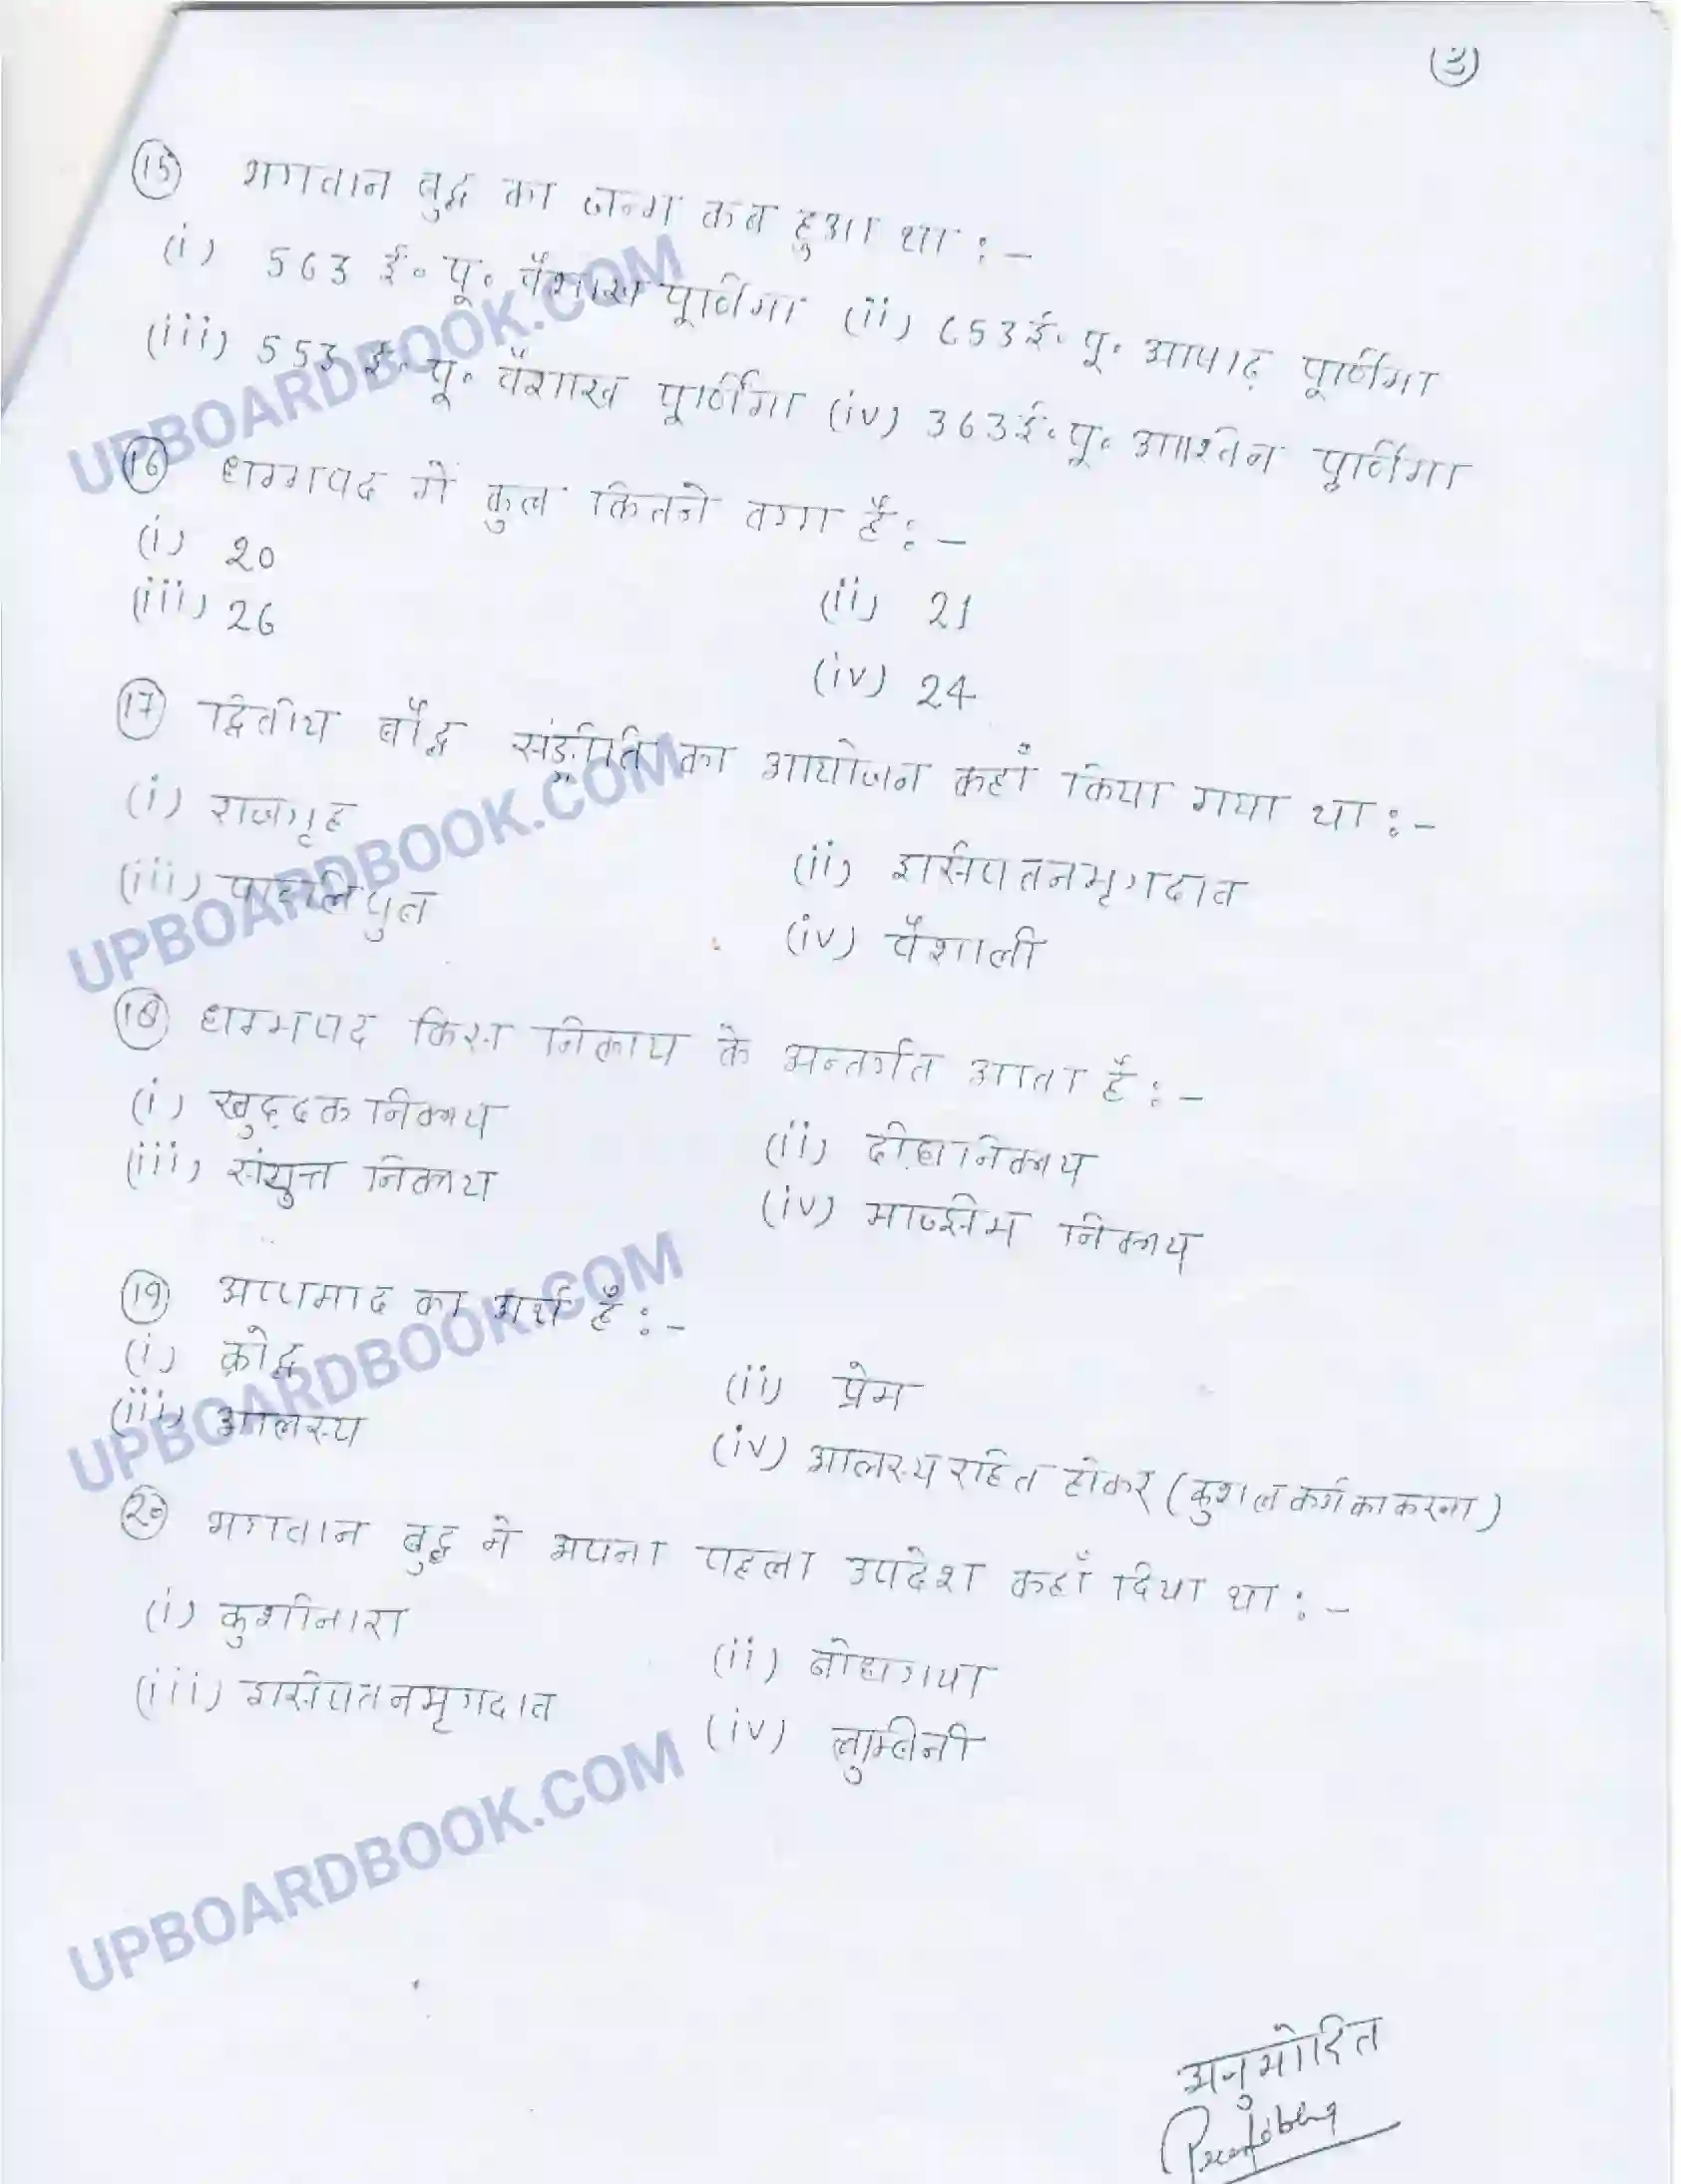 (3)
(15) भगवान बुद्ध का जन्म कब हुआ था :-
(i) 563 ई॰ पू॰ वैशाख पूर्णिमा (ii) 653 ई॰ पू॰ आषाढ़ पूर्णिमा
(iii) 553 ई॰ पू॰ वैशाख पूर्णिमा (iv) 363 ई॰ पू॰ आश्विन पूर्णिमा
(16) धम्मपद में कुल कितने वग्ग है :-
(i) 20 (ii) 21
(iii) 26 (iv) 24
(17) द्वितीय बौद्ध का आयोजन कहाँ किया गया था :-
(i) राजगृह (ii) इसिपतनमृगदाव
(iii) पाटलिपुत्र (iv) वैशाली
(18) धम्मपद किस निकाय के अन्तर्गत आता है :-
(i) खुद्दक निकाय (ii) दीघ निकाय
(iii) संयुत्त निकाय (iv) मज्झिम निकाय
(19) अप्पमाद का अर्थ है :-
(i) क्रोध (ii) प्रेम
(iii) आलस्य (iv) आलस्य रहित होकर (कुशल कर्म का करना)
(20) भगवान बुद्ध ने अपना पहला उपदेश कहाँ दिया था :-
(i) कुशीनारा (ii) बोधगया
(iii) इसिपतनमृगदाव (iv) लुम्बिनी
अनुमोदित
UPBOARDBOOK.COM
UPBOARDBOOK.COM
UPBOARDBOOK.COM
UPBOARDBOOK.COM